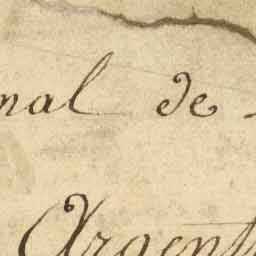 nal de
Argent